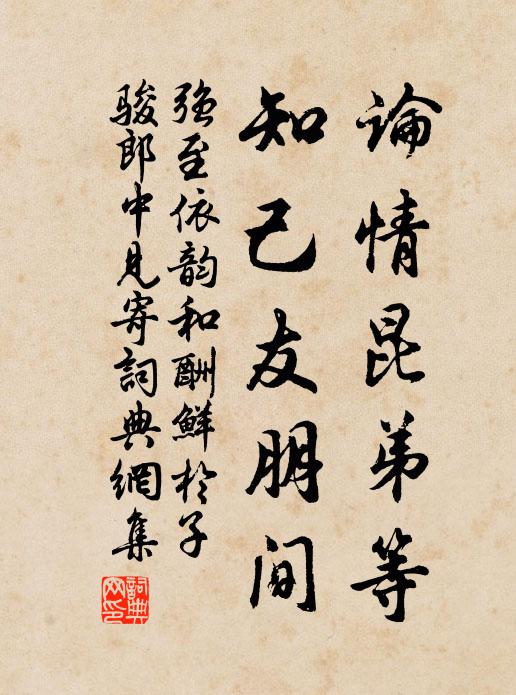 論情昆弟等
知己友朋間
强至依韵和酬鮮於子
骏郎中見寄詞典網集
詞典网印